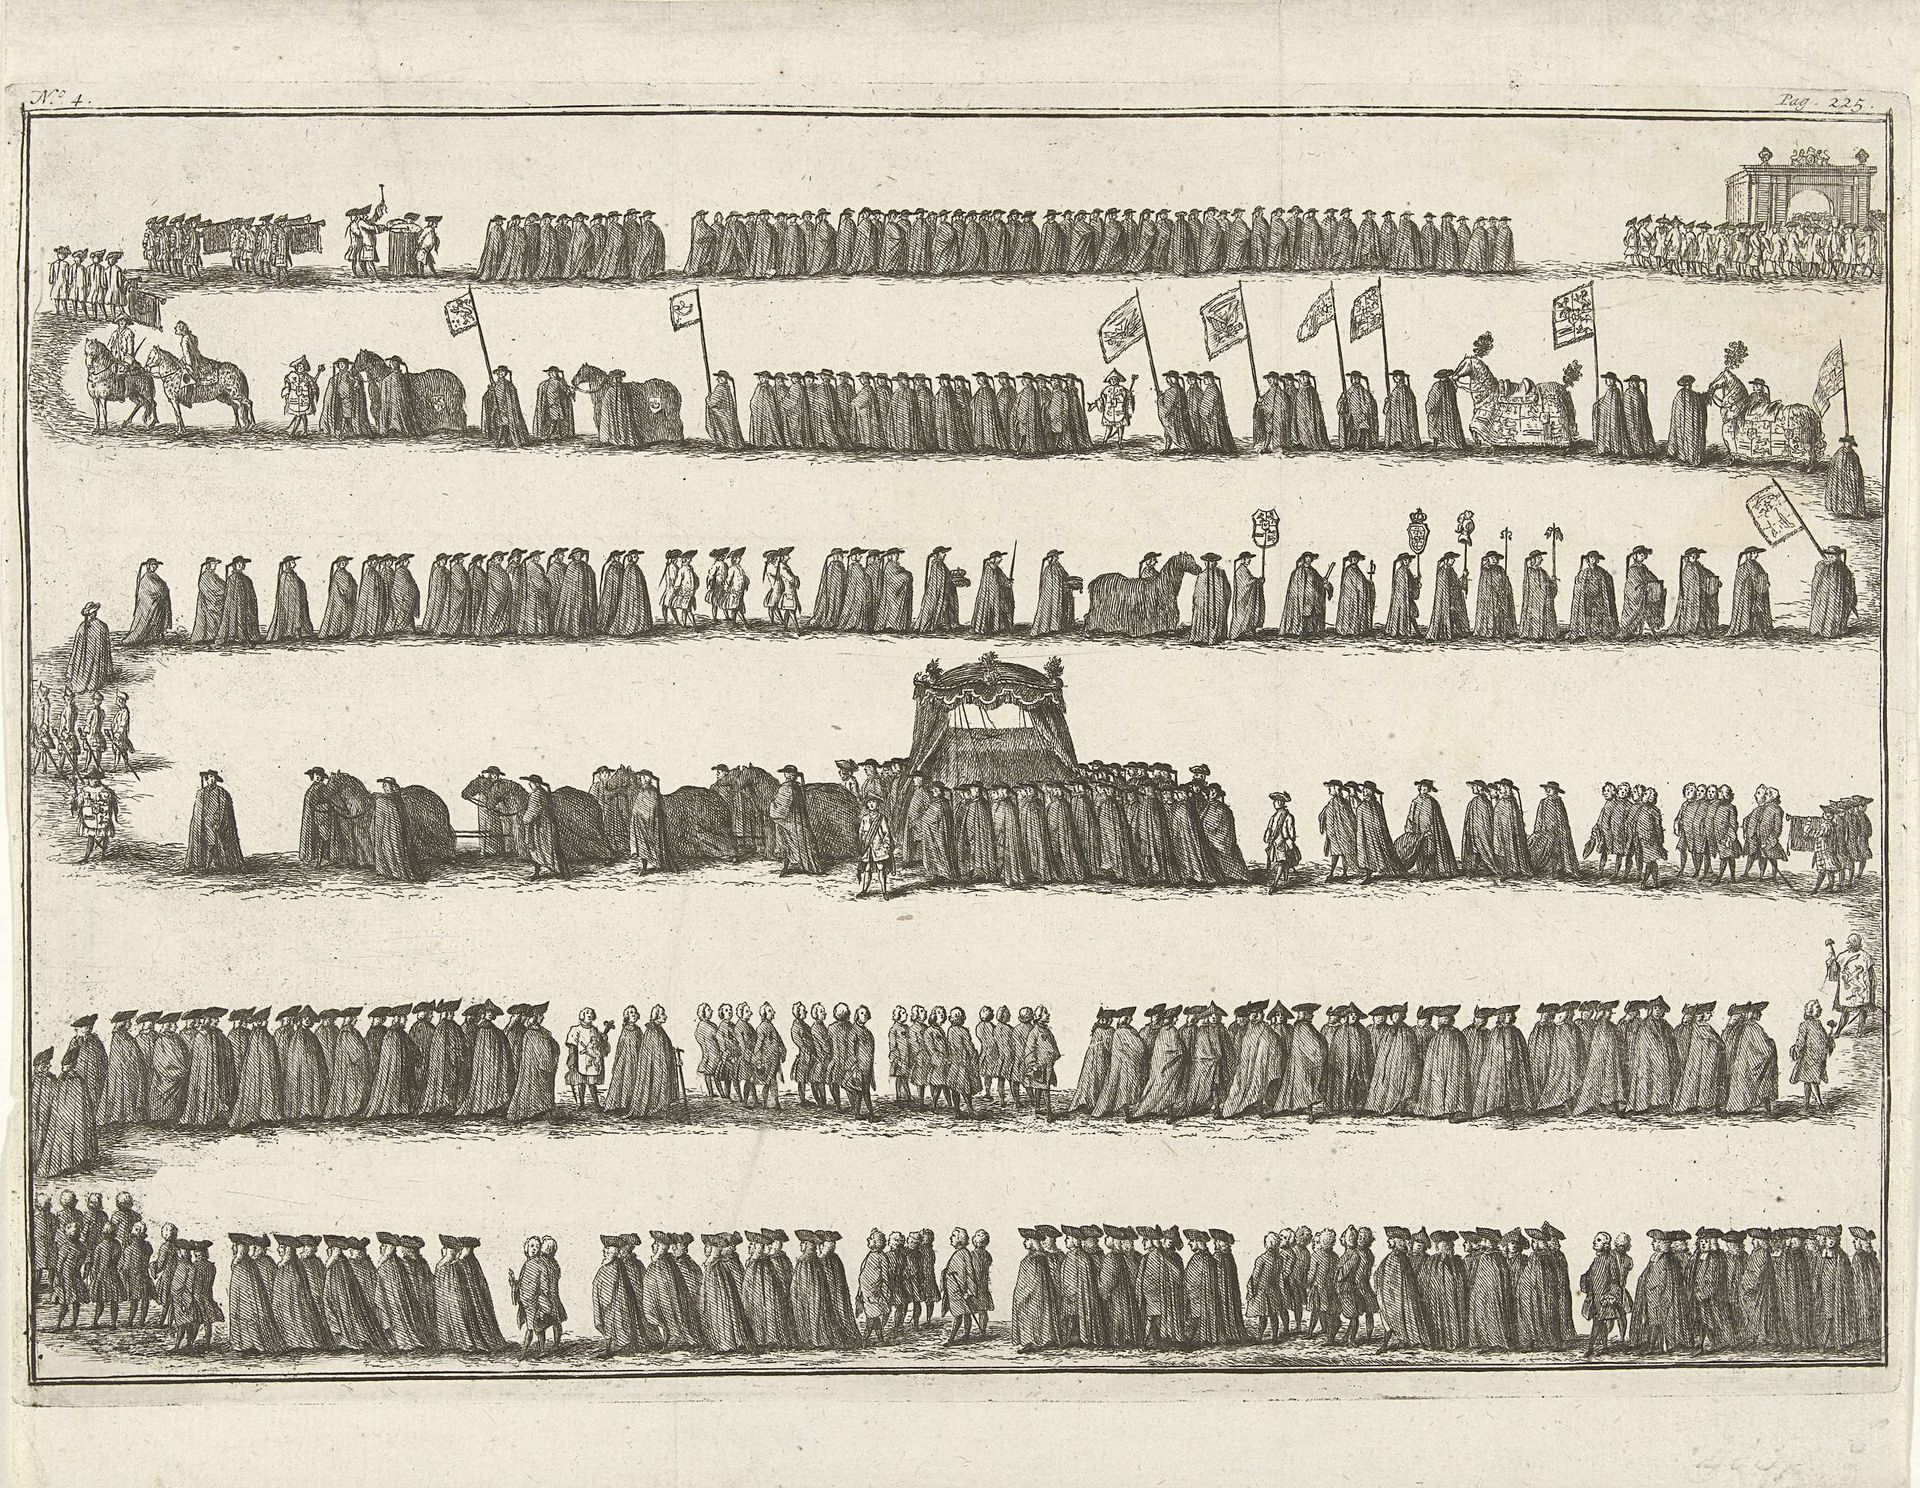 N.º 4.
Pag. 225.